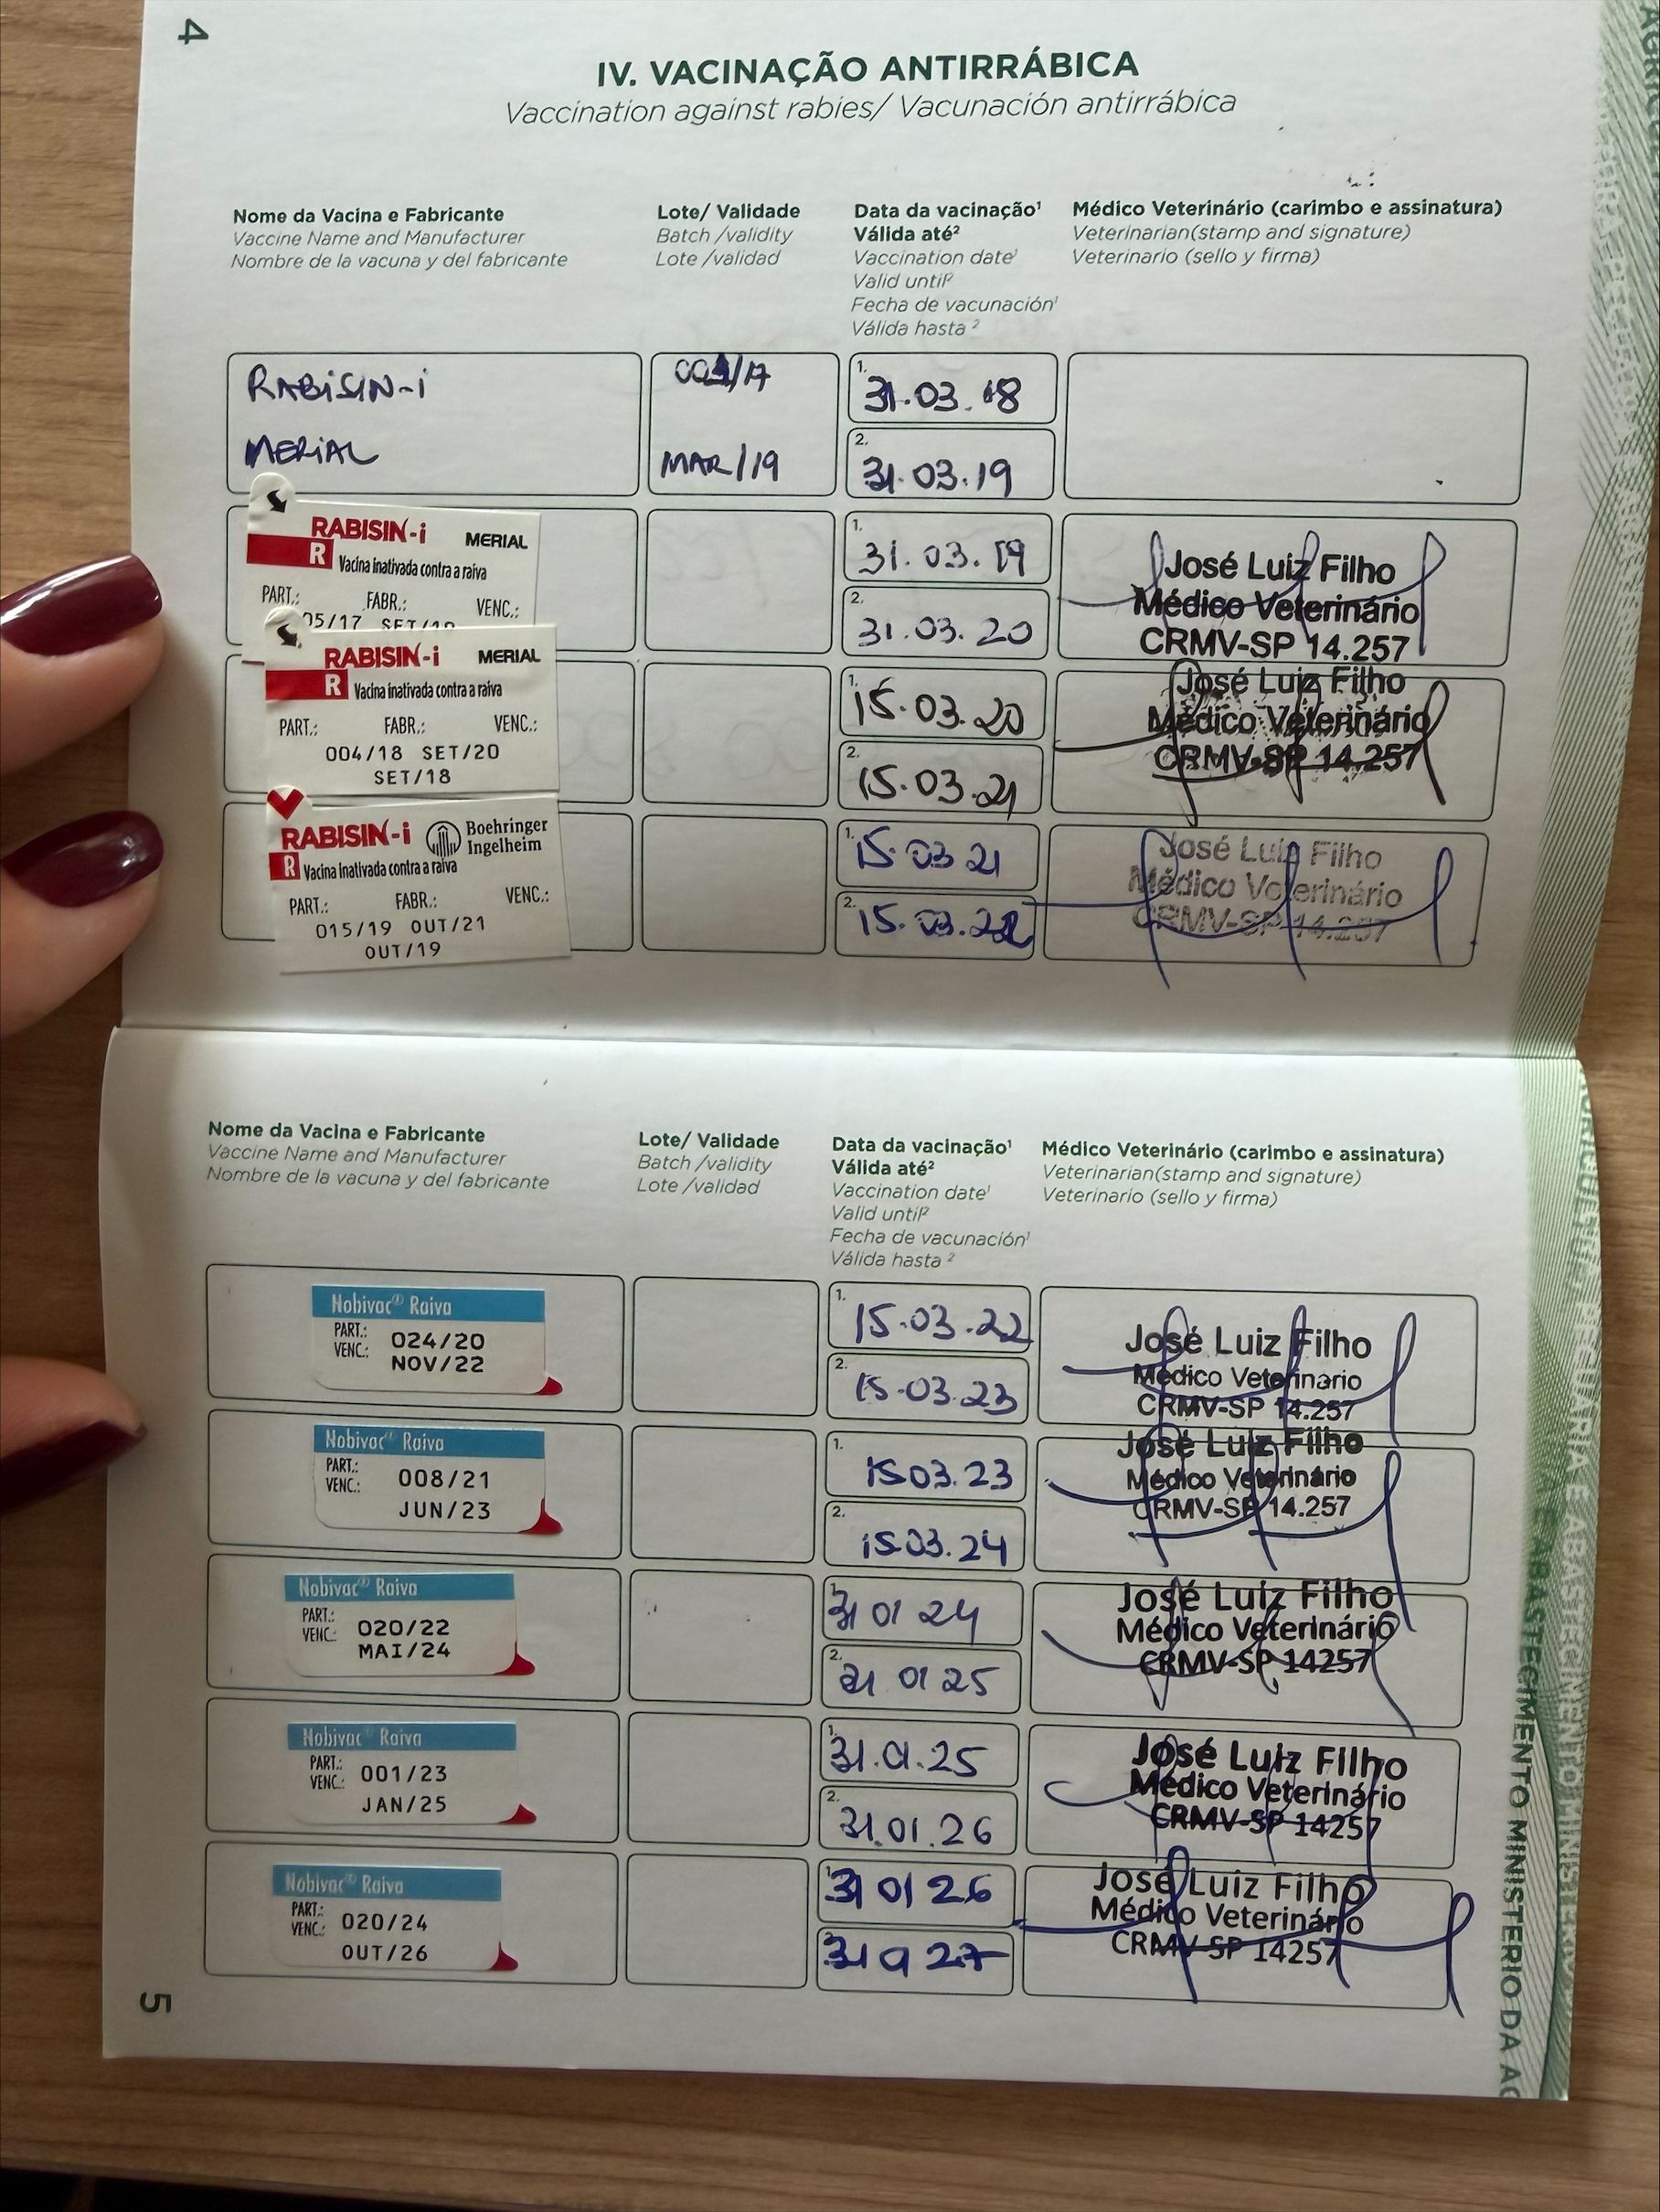 4
IV. VACINAÇÃO ANTIRRÁBICA
Vaccination against rabies/ Vacunación antirrábica
Nome da Vacina e Fabricante
Vaccine Name and Manufacturer
Nombre de la vacuna y del fabricante
Lote/ Validade
Batch /validity
Lote /validad
Data da vacinação¹
Válida até²
Vaccination date¹
Valid until²
Fecha de vacunación¹
Válida hasta ²
Médico Veterinário (carimbo e assinatura)
Veterinarian(stamp and signature)
Veterinario (sello y firma)
RABiSiN-i
MERiAL
MAR/19
1. 31.03.18
2. 31.03.19
RABISIN-i MERIAL
R Vacina inativada contra a raiva
PART.: FABR.: VENC.:
05/17
1. 31.03.19
2. 31.03.20
José Luiz Filho
Médico Veterinário
CRMV-SP 14.257
RABISIN-i MERIAL
R Vacina inativada contra a raiva
PART.: FABR.: VENC.:
004/18 SET/20
SET/18
1. 15.03.20
2. 15.03.21
José Luiz Filho
Médico Veterinário
CRMV-SP 14.257
RABISIN-i Boehringer Ingelheim
R Vacina Inativada contra a raiva
PART.: FABR.: VENC.:
015/19 OUT/21
OUT/19
1. 15.03 21
2. 15.03.22
José Luiz Filho
Médico Veterinário
CRMV-SP 14.257
Nome da Vacina e Fabricante
Vaccine Name and Manufacturer
Nombre de la vacuna y del fabricante
Lote/ Validade
Batch /validity
Lote /validad
Data da vacinação¹
Válida até²
Vaccination date¹
Valid until²
Fecha de vacunación¹
Válida hasta ²
Médico Veterinário (carimbo e assinatura)
Veterinarian(stamp and signature)
Veterinario (sello y firma)
Nobivac® Raiva
PART.: 024/20
VENC.: NOV/22
1. 15.03.22
2. 15.03.23
José Luiz Filho
Médico Veterinario
CRMV-SP 14.257
Nobivac® Raiva
PART.: 008/21
VENC.: JUN/23
1. 15 03.23
2. 15 03.24
José Luiz Filho
Médico Veterinário
CRMV-SP 14.257
Nobivac® Raiva
PART.: 020/22
VENC.: MAI/24
1. 31 01 24
2. 31 01 25
José Luiz Filho
Médico Veterinário
CRMV-SP 14257
Nobivac® Raiva
PART.: 001/23
VENC.: JAN/25
1. 31.01.25
2. 31.01.26
José Luiz Filho
Médico Veterinário
CRMV-SP 14257
Nobivac® Raiva
PART.: 020/24
VENC.: OUT/26
1. 31 01 26
2. 31 01 27
José Luiz Filho
Médico Veterinário
CRMV-SP 14257
5